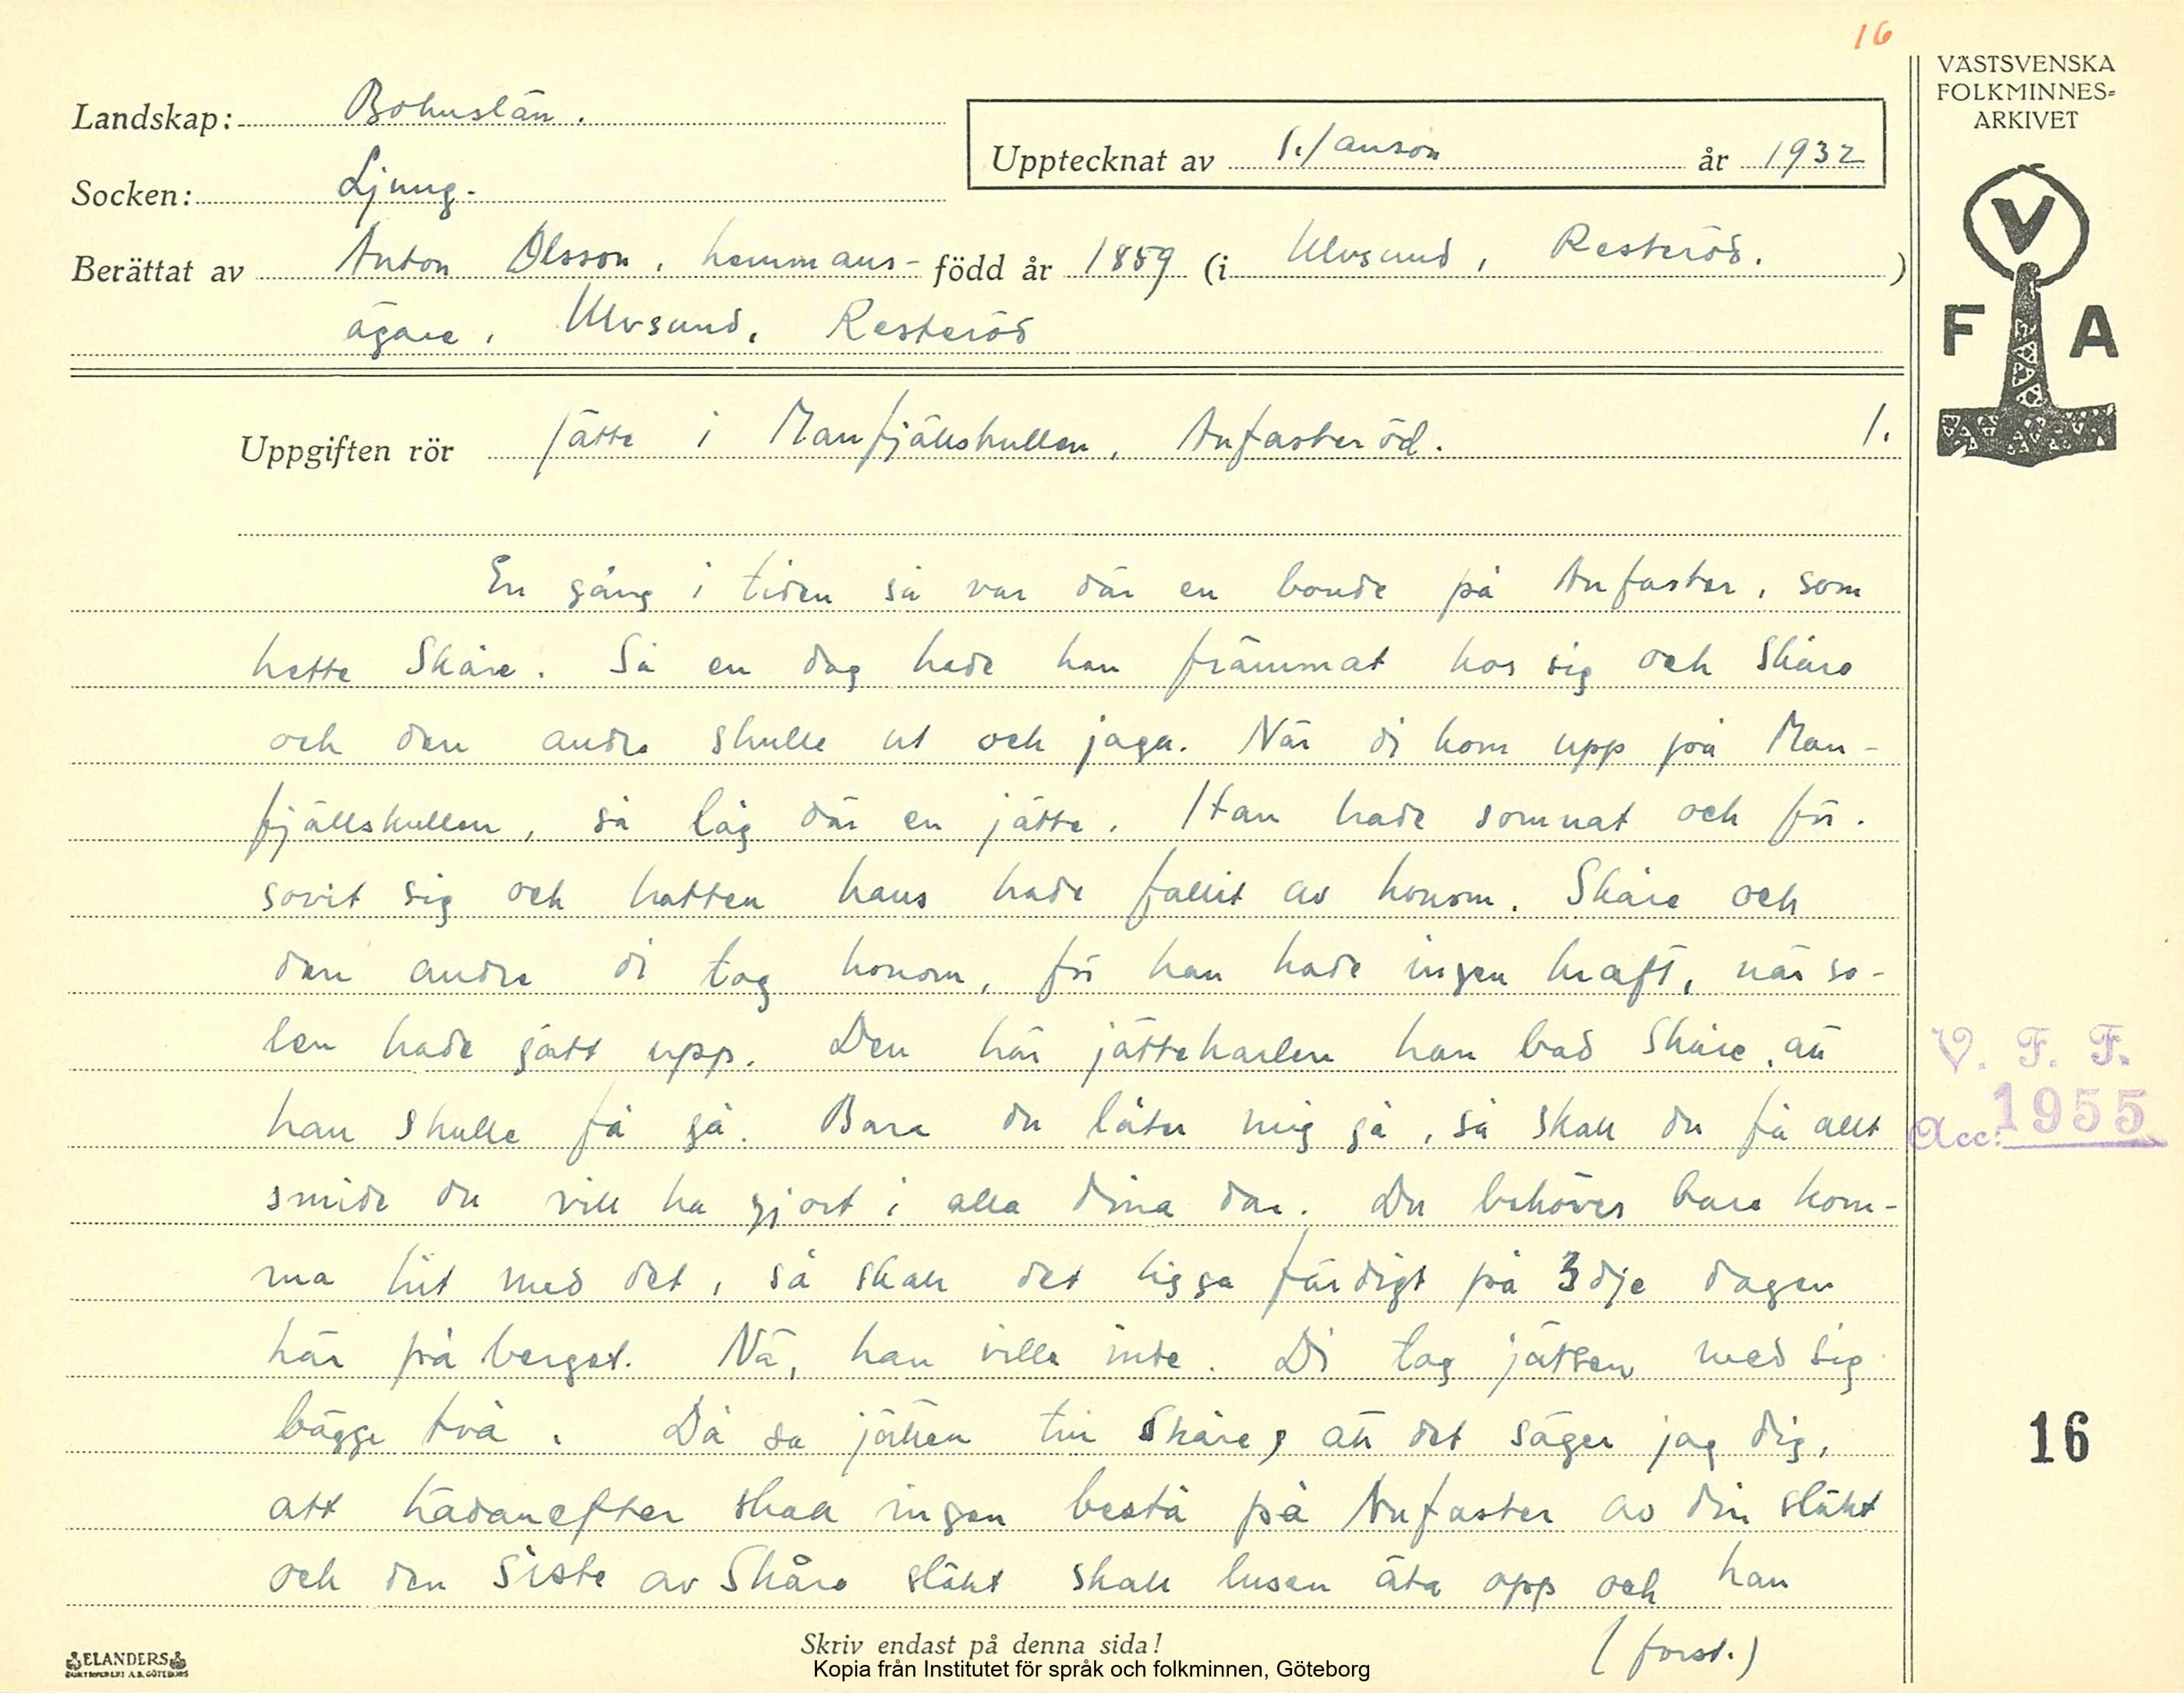 16
VÄSTSVENSKA
FOLKMINNES-
ARKIVET
Landskap: Bohuslän.
Upptecknat av S. Janson år 1932
Socken: Ljung.
Berättat av Anton Olsson, hemmans- född år 1859 (i Ulvsund, Resteröd.)
ägare, Ulvsund, Resteröd
V
F A
Uppgiften rör Jätte i Manfjällskullen, Anfasteröd. 1.
En gång i tiden så var där en bonde på Anfaster, som
hette Skåre. Så en dag hade han främmat hos sig och Skåre
och den andre skulle ut och jaga. När di kom upp på Man-
fjällskullen, så låg där en jätte. Han hade somnat och för-
sovit sig och hatten hans hade fallit av honom. Skåre och
den andre di tog honom, för han hade ingen kraft, när so-
len hade gått upp. Den här jättekarlen han bad Skåre, att
han skulle få gå. Bara du låter mig gå, så skall du få allt
smide du vill ha gjort i alla dina dar. Du behöver bara kom-
ma hit med det, så skall det ligga färdigt på 3dje dagen
här på berget. Nä, han ville inte. Di tog jätten med sig
bägge två. Då sa jätten till Skåre, att det säger jag dig,
att hädanefter skall ingen bestå på Anfaster av din släkt
och den siste av Skåre släkt skall lusen äta opp och han
(forts.)
V. F. F.
Acc: 1955
16
Skriv endast på denna sida!
ELANDERS
Kopia från Institutet för språk och folkminnen, Göteborg